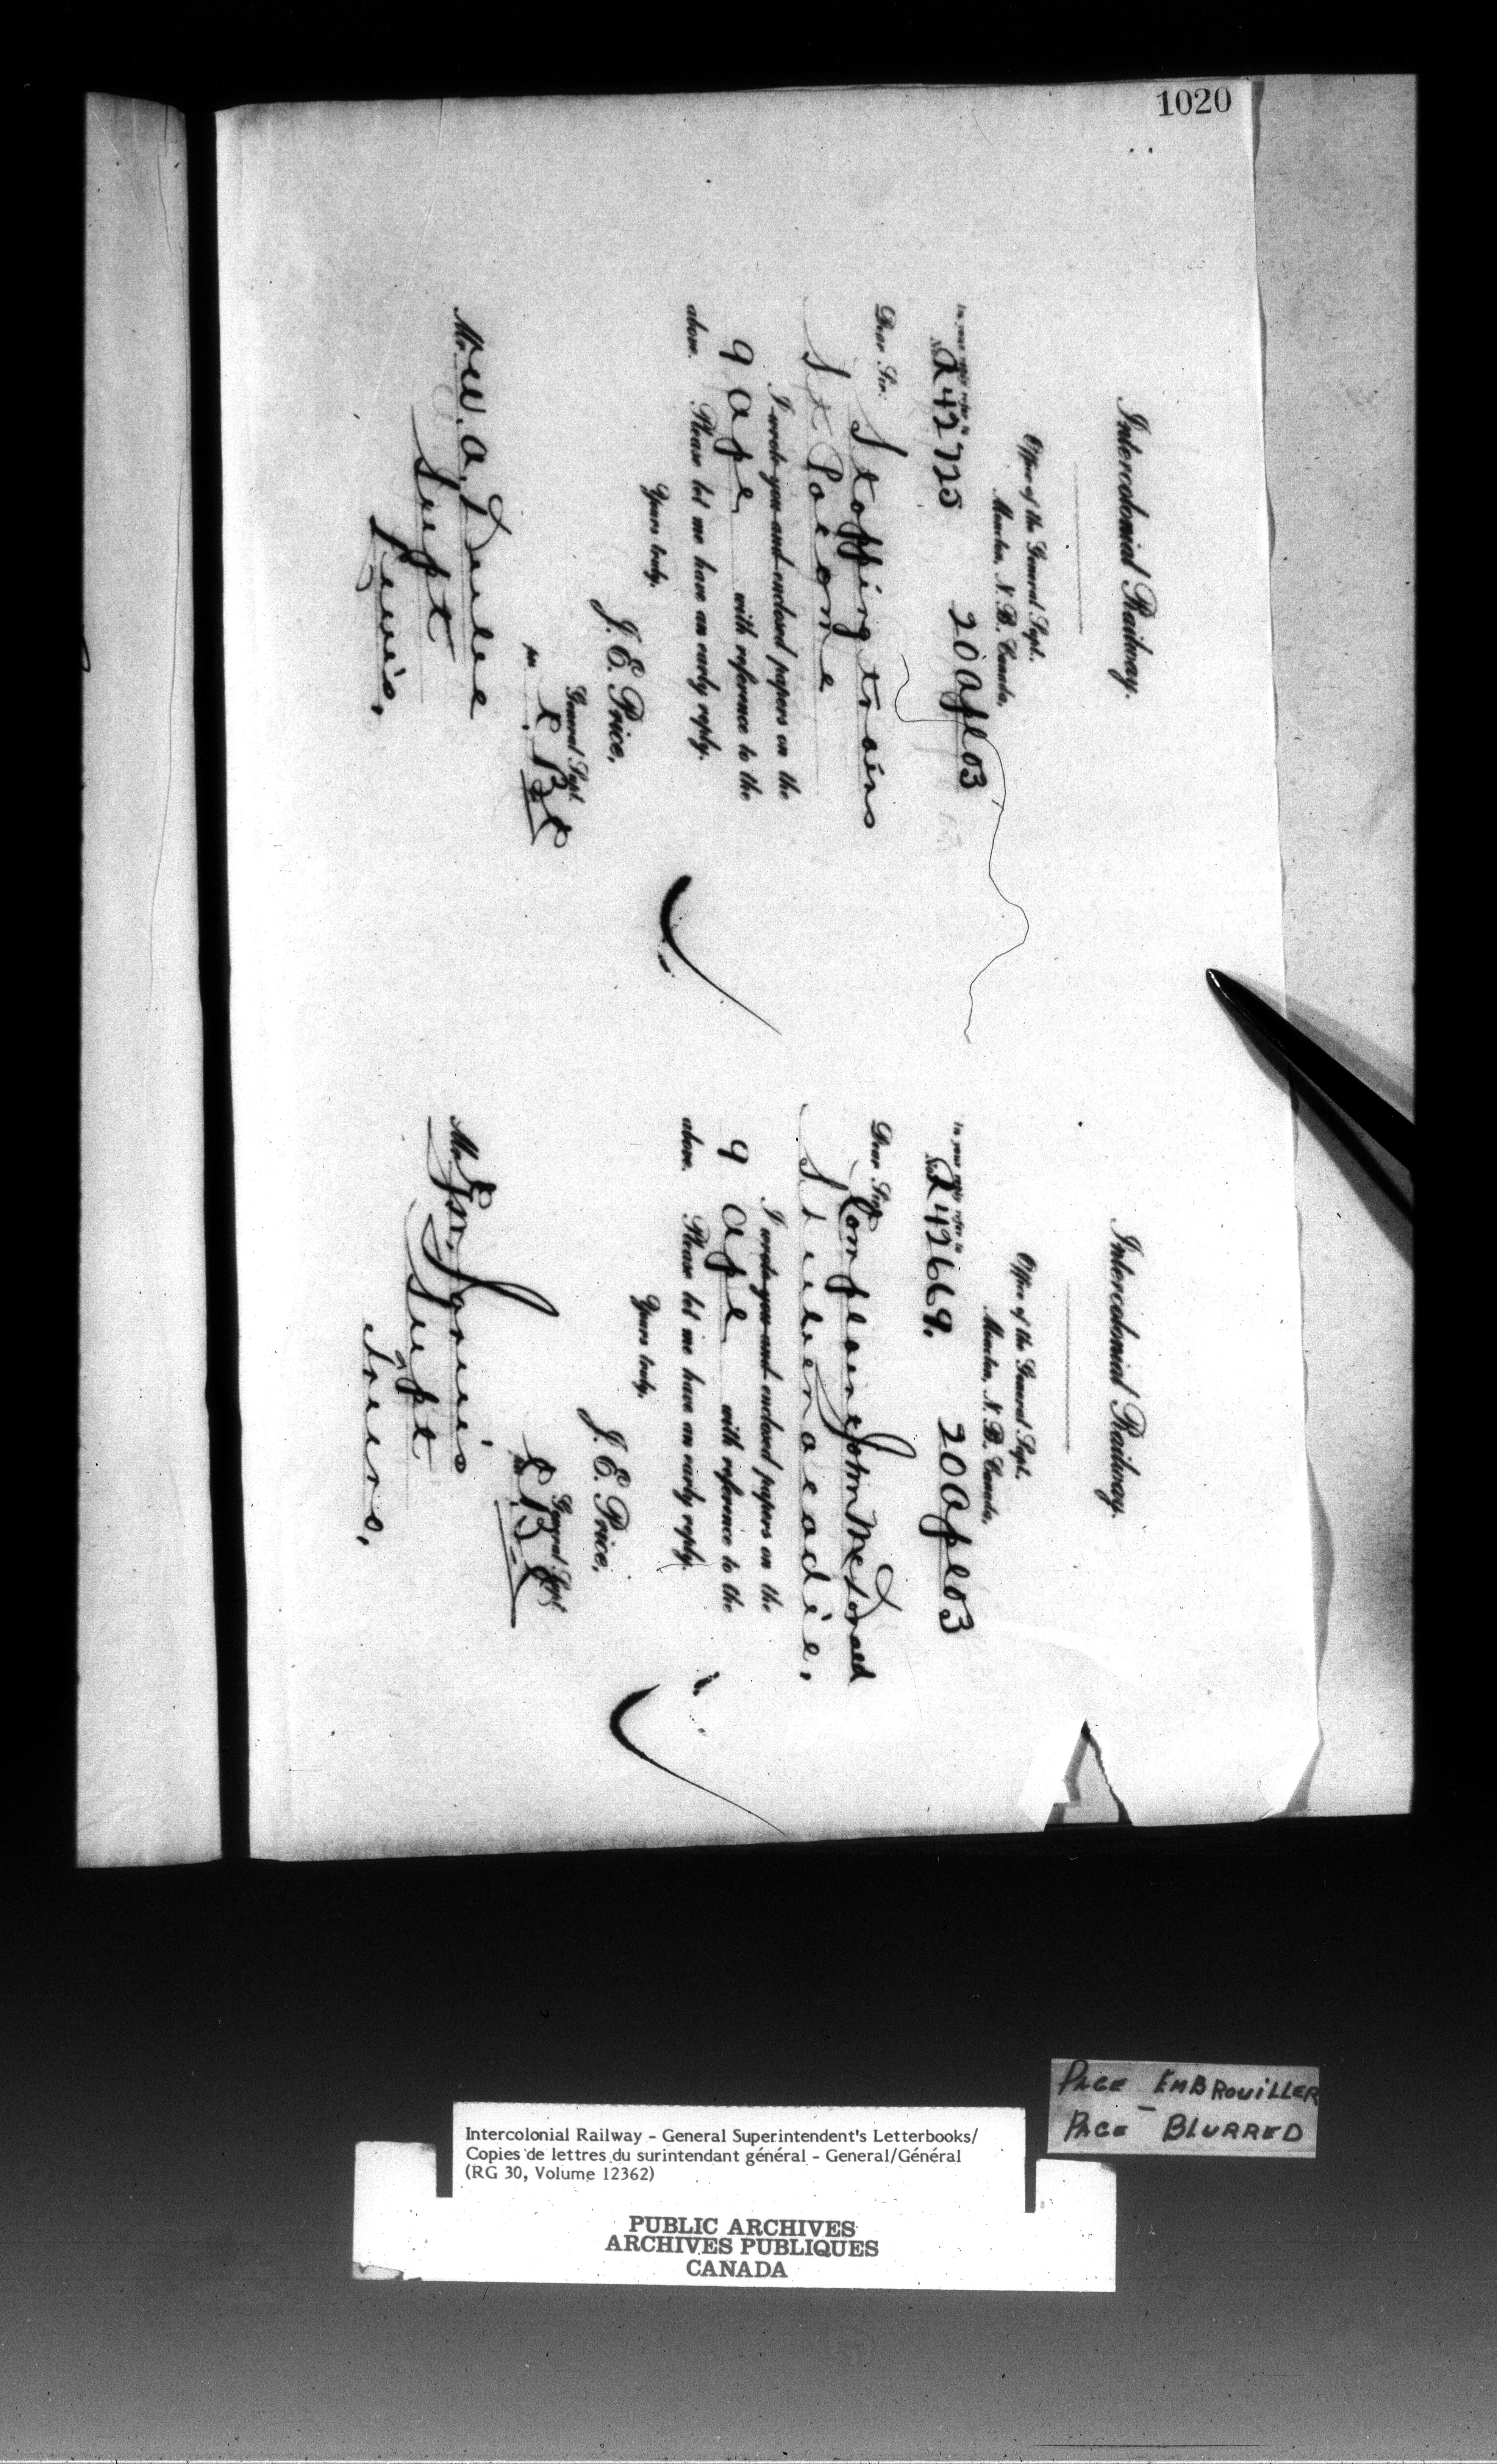 1020
Intercolonial Railway.
Office of the General Supt.
Moncton, N. B. Canada,
20 Apl 03
In your reply refer to
No. A 42725
Dear Sir,
Stopping trains
St Pacome
I wrote you and enclosed papers on the
9 Apl with reference to the
above. Please let me have an early reply.
Yours truly,
J. E. Price,
General Supt.
per
Mr. W. A. Dube
Supt
Levis.
Intercolonial Railway.
Office of the General Supt.
Moncton, N. B. Canada,
20 Apl 03
In your reply refer to
No. A 42669.
Dear Sir,
Complaint John McDonald
Stewiacke.
I wrote you and enclosed papers on the
9 Apl with reference to the
above. Please let me have an early reply.
Yours truly,
J. E. Price,
General Supt.
Mr. Jarvis
Supt
Truro.
PAGE EMBROUILLER
PAGE - BLURRED
Intercolonial Railway - General Superintendent's Letterbooks/
Copies de lettres du surintendant général - General/Général
(RG 30, Volume 12362)
PUBLIC ARCHIVES
ARCHIVES PUBLIQUES
CANADA